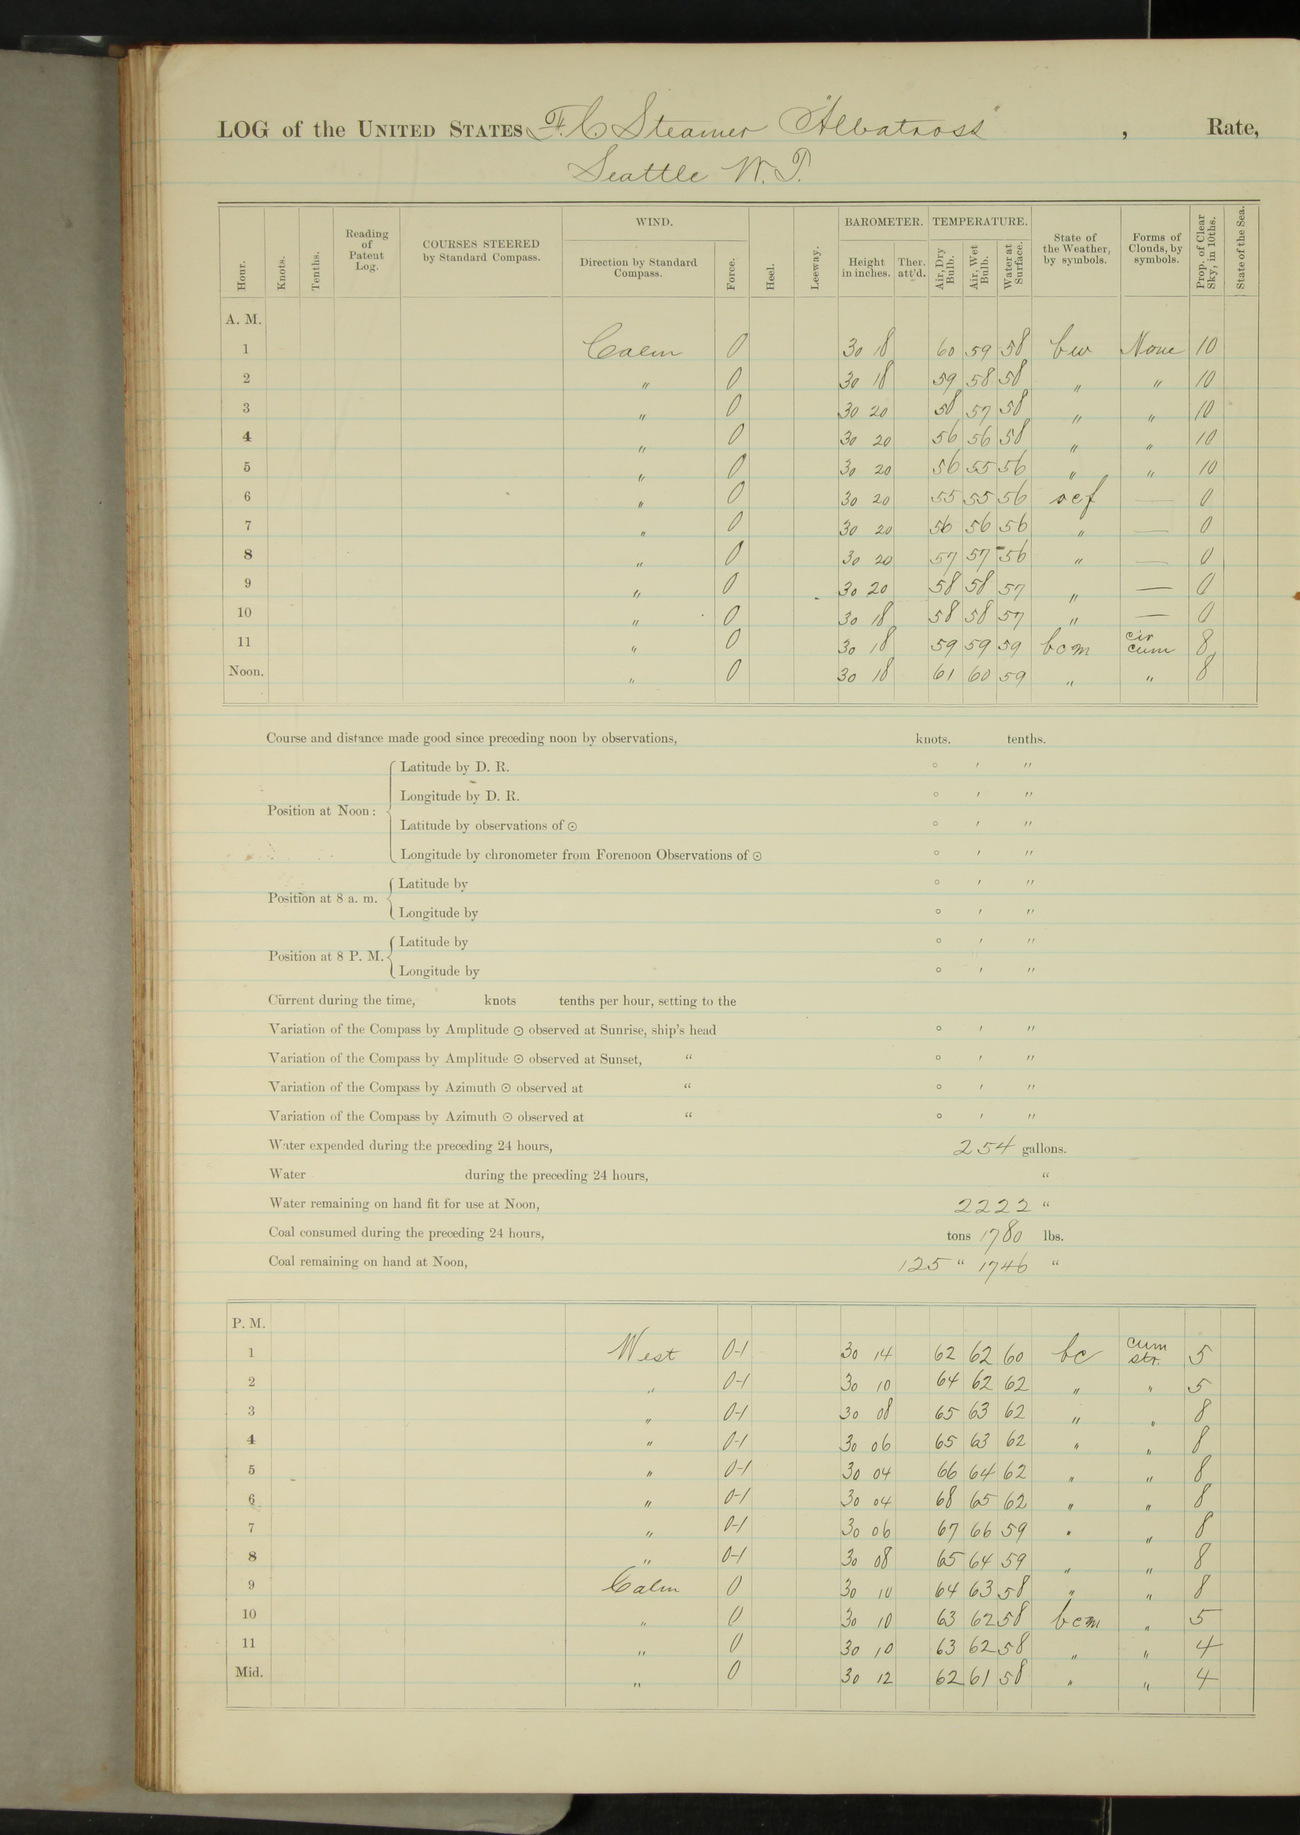 LOG of the UNITED STATES F. C. Steamer "Albatross", Rate,
Seattle W. T.
Hour. Knots. Tenths. Reading of Patent Log. COURSES STEERED by Standard Compass. WIND. Direction by Standard Compass. Force. Heel. Leeway. BAROMETER. Height in inches. Ther. att'd. TEMPERATURE. Air, Dry Bulb. Air, Wet Bulb. Water at Surface. State of the Weather, by symbols. Forms of Clouds, by symbols. Prop. of Clear Sky, in 10ths. State of the Sea.
A. M.
1 Calm 0 30 18 60 59 58 bw None 10
2 " 0 30 18 59 58 58 " " 10
3 " 0 30 20 58 57 58 " " 10
4 " 0 30 20 56 56 58 " " 10
5 " 0 30 20 56 55 56 " " 10
6 " 0 30 20 55 55 56 ocf — 0
7 " 0 30 20 56 56 56 " — 0
8 " 0 30 20 57 57 56 " — 0
9 " 0 30 20 58 58 57 " — 0
10 " 0 30 18 58 58 57 " — 0
11 " 0 30 18 59 59 59 bcm cir cum 8
Noon. " 0 30 18 61 60 59 " " 8
Course and distance made good since preceding noon by observations, knots. tenths.
Position at Noon:
Latitude by D. R. ° ′ ″
Longitude by D. R. ° ′ ″
Latitude by observations of ☉ ° ′ ″
Longitude by chronometer from Forenoon Observations of ☉ ° ′ ″
Position at 8 a. m.
Latitude by ° ′ ″
Longitude by ° ′ ″
Position at 8 P. M.
Latitude by ° ′ ″
Longitude by ° ′ ″
Current during the time, knots tenths per hour, setting to the
Variation of the Compass by Amplitude ☉ observed at Sunrise, ship's head ° ′ ″
Variation of the Compass by Amplitude ☉ observed at Sunset, " ° ′ ″
Variation of the Compass by Azimuth ☉ observed at " ° ′ ″
Variation of the Compass by Azimuth ☉ observed at " ° ′ ″
Water expended during the preceding 24 hours, 254 gallons.
Water during the preceding 24 hours, "
Water remaining on hand fit for use at Noon, 2222 "
Coal consumed during the preceding 24 hours, tons 1780 lbs.
Coal remaining on hand at Noon, 125 " 1746 "
P. M.
1 West 0-1 30 14 62 62 60 bc cum str. 5
2 " 0-1 30 10 64 62 62 " " 5
3 " 0-1 30 08 65 63 62 " " 8
4 " 0-1 30 06 65 63 62 " " 8
5 " 0-1 30 04 66 64 62 " " 8
6 " 0-1 30 04 68 65 62 " " 8
7 " 0-1 30 06 67 66 59 " " 8
8 " 0-1 30 08 65 64 59 " " 8
9 Calm 0 30 10 64 63 58 " " 8
10 " 0 30 10 63 62 58 bcm " 5
11 " 0 30 10 63 62 58 " " 4
Mid. " 0 30 12 62 61 58 " " 4